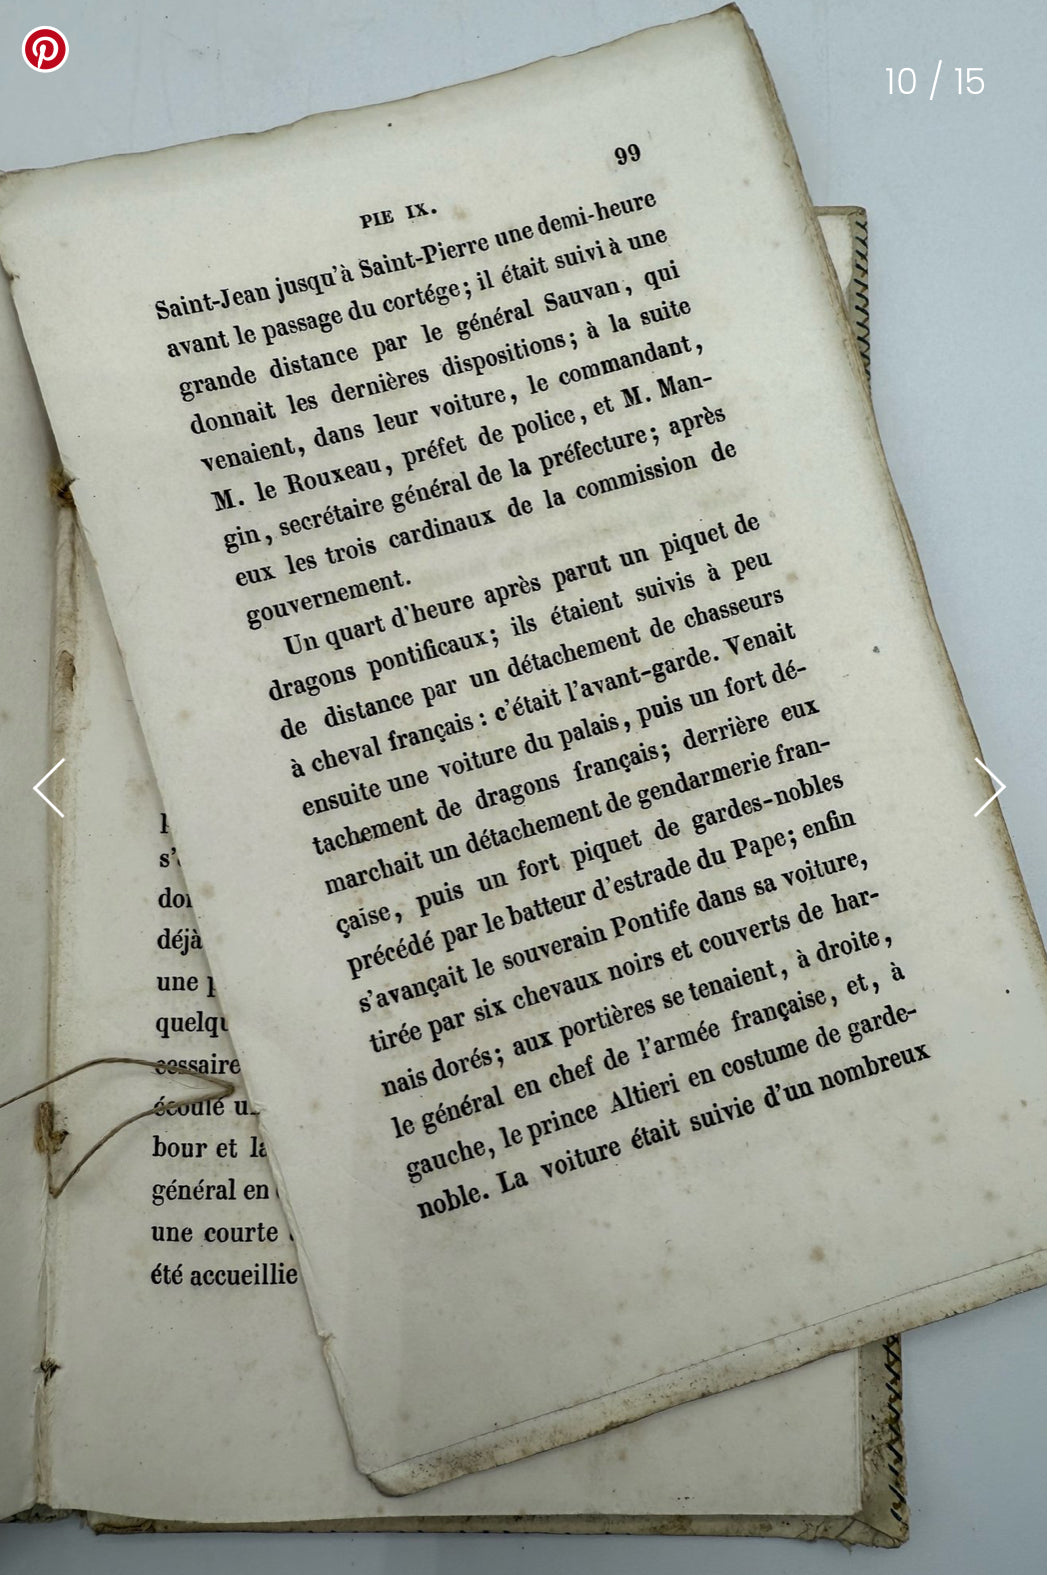 10 / 15
99
PIE IX.
Saint-Jean jusqu'à Saint-Pierre une demi-heure
avant le passage du cortége; il était suivi à une
grande distance par le général Sauvan, qui
donnait les dernières dispositions; à la suite
venaient, dans leur voiture, le commandant,
M. le Rouxeau, préfet de police, et M. Man-
gin, secrétaire général de la préfecture; après
eux les trois cardinaux de la commission de
gouvernement.
Un quart d'heure après parut un piquet de
dragons pontificaux; ils étaient suivis à peu
de distance par un détachement de chasseurs
à cheval français : c'était l'avant-garde. Venait
ensuite une voiture du palais, puis un fort dé-
tachement de dragons français; derrière eux
marchait un détachement de gendarmerie fran-
çaise, puis un fort piquet de gardes-nobles
précédé par le batteur d'estrade du Pape; enfin
s'avançait le souverain Pontife dans sa voiture,
tirée par six chevaux noirs et couverts de har-
nais dorés; aux portières se tenaient, à droite,
le général en chef de l'armée française, et, à
gauche, le prince Altieri en costume de garde-
noble. La voiture était suivie d'un nombreux
déjà
une
bour et
général en
une courte
été accueillie